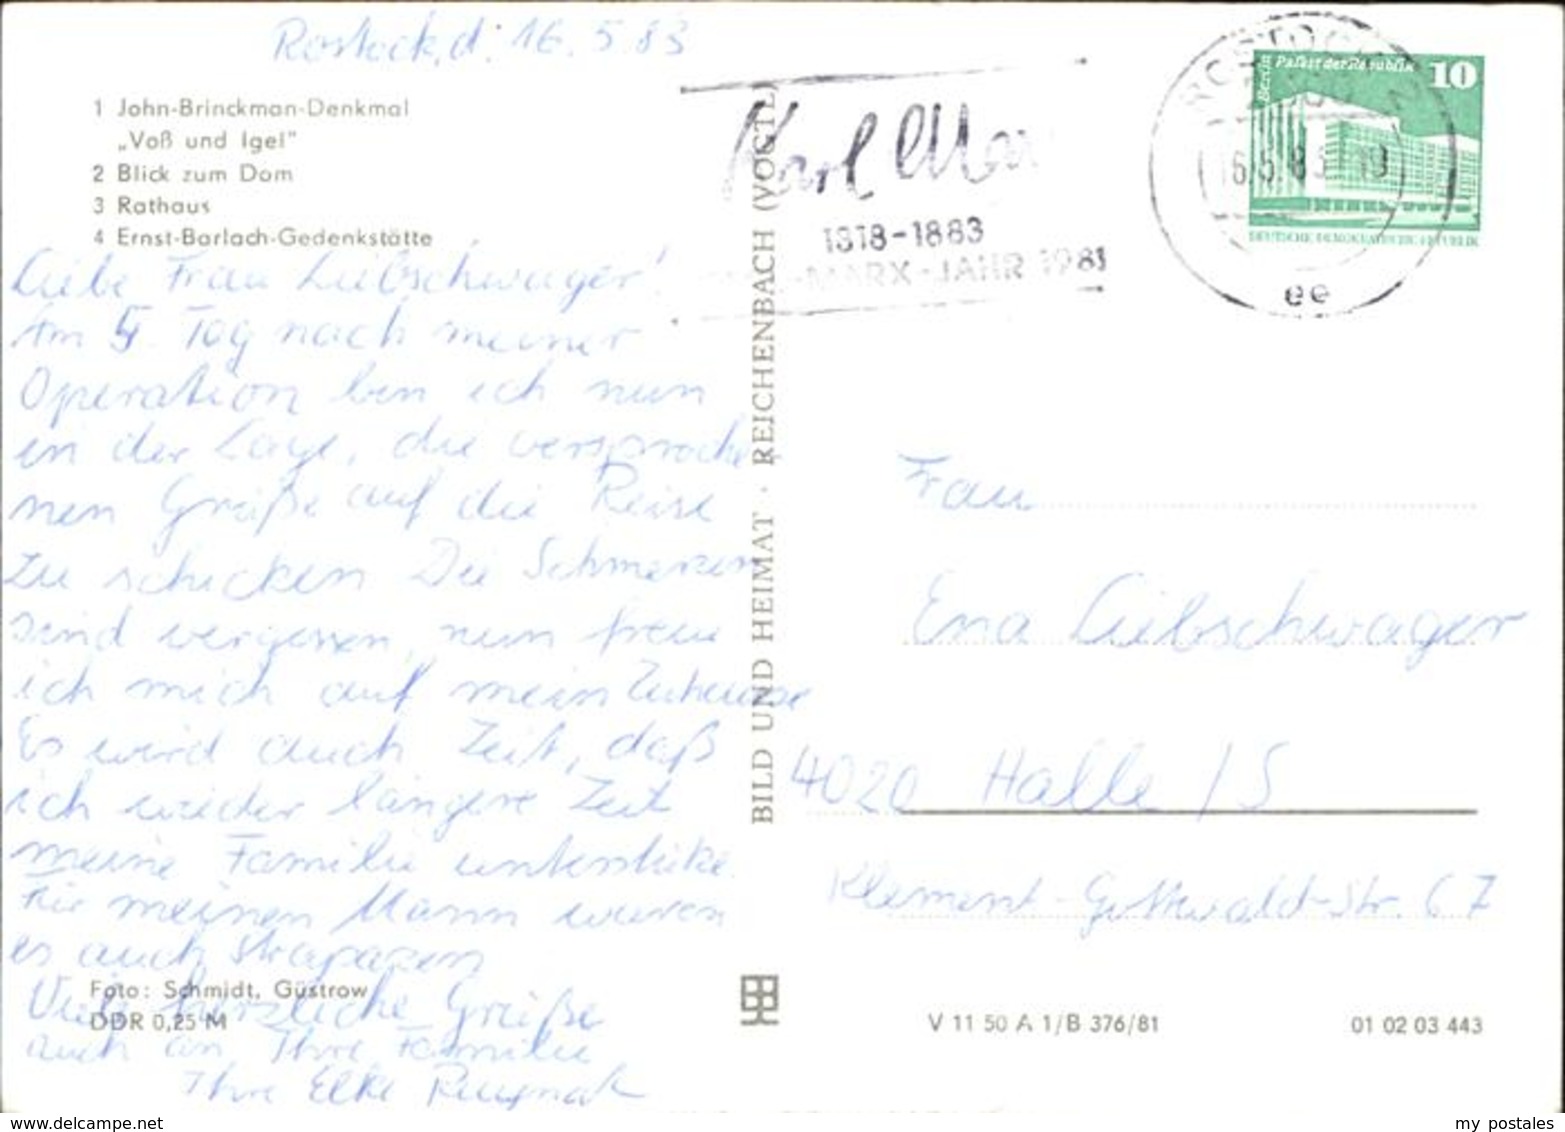 Rostock, d. 16.5.83
1 John-Brinckman-Denkmal
„Voß und Igel"
2 Blick zum Dom
3 Rathaus
4 Ernst-Barlach-Gedenkstätte
Liebe Frau Liebschwager!
Am 5. Tag nach meiner
Operation bin ich nun
in der Lage, die versproche
nen Grüße auf die Reise
zu schicken Die Schmerzen
sind vergessen, nun freue
ich mich auf mein Zuhause
Es wird auch Zeit, daß
ich wieder längere Zeit
meine Familie unterstütze
Für meinen Mann waren
es auch Strapazen
Viele herzliche Grüße
auch an Ihre Familie
Ihre Elke
Foto: Schmidt, Güstrow
DDR 0,25 M
BILD UND HEIMAT · REICHENBACH (VOGTL)
Karl Marx
1818-1883
-MARX-JAHR 1983
ROSTOCK
16.5.83 19
ee
Berlin Palast der Republik 10
DEUTSCHE DEMOKRATISCHE REPUBLIK
Frau
Ena Liebschwager
4020 Halle / S
Klement-Gottwald-Str. 67
V 11 50 A 1/B 376/81
01 02 03 443
www.delcampe.net
my_postales